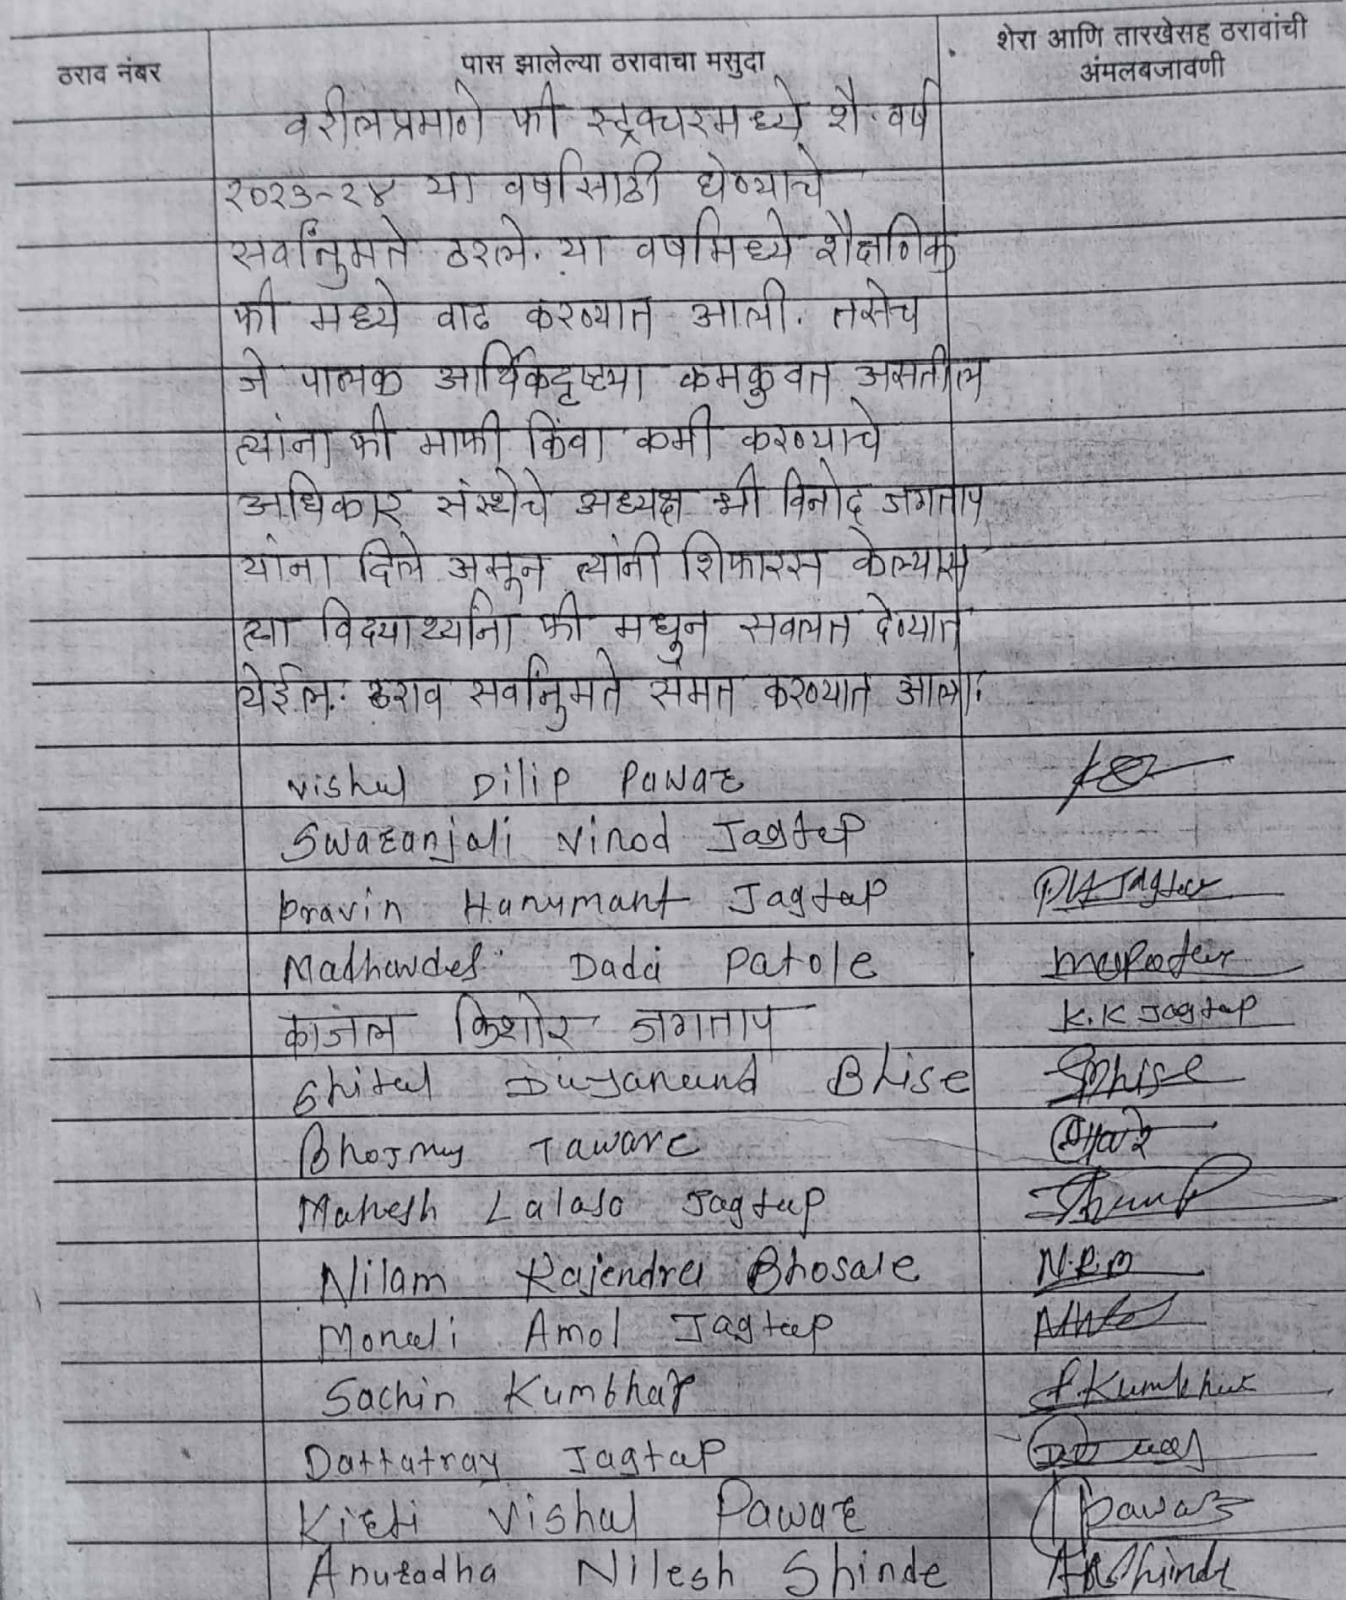 ठराव नंबर
पास झालेल्या ठरावाचा मसुदा
शेरा आणि तारखेसह ठरावांची
अंमलबजावणी
वरीलप्रमाणे फी स्ट्रक्चरमध्ये शै. वर्ष
२०२३-२४ या वर्षासाठी घेण्याचे
सर्वानुमते ठरले. या वर्षामध्ये शैक्षणिक
फी मध्ये वाढ करण्यात आली. तसेच
जे पालक आर्थिकदृष्ट्या कमकुवत असतील
त्यांना फी माफी किंवा कमी करण्याचे
अधिकार संस्थेचे अध्यक्ष श्री विनोद जगताप
यांना दिले असून त्यांनी शिफारस केल्यास
त्या विद्यार्थ्यांना फी मधुन सवलत देण्यात
येईल. ठराव सर्वानुमते संमत करण्यात आला.
Vishal Dilip Pawar
Swaranjali Vinod Jagtap
Pravin Hanumant Jagtap PH Jagtap
Dada Patole
काजल किशोर जगताप K.K Jagtap
Shital Bhise SBhise
Taware
Mahesh Lalaso Jagtap
Nilam Rajendra Bhosale N.R.B
Monali Amol Jagtap
Sachin Kumbhar S.Kumbhar
Dattatray Jagtap
Kirti Vishal Pawar Pawar
Anuradha Nilesh Shinde ANShinde